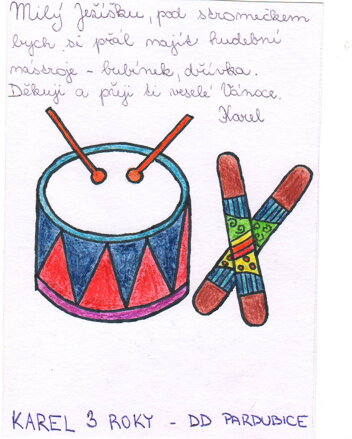 Milý Ježíšku, pod stromečkem
bych si přál najít hudební
nástroje - bubínek, dřívka.
Děkuji a přeji ti veselé Vánoce.
Karel
KAREL 3 ROKY - DD PARDUBICE